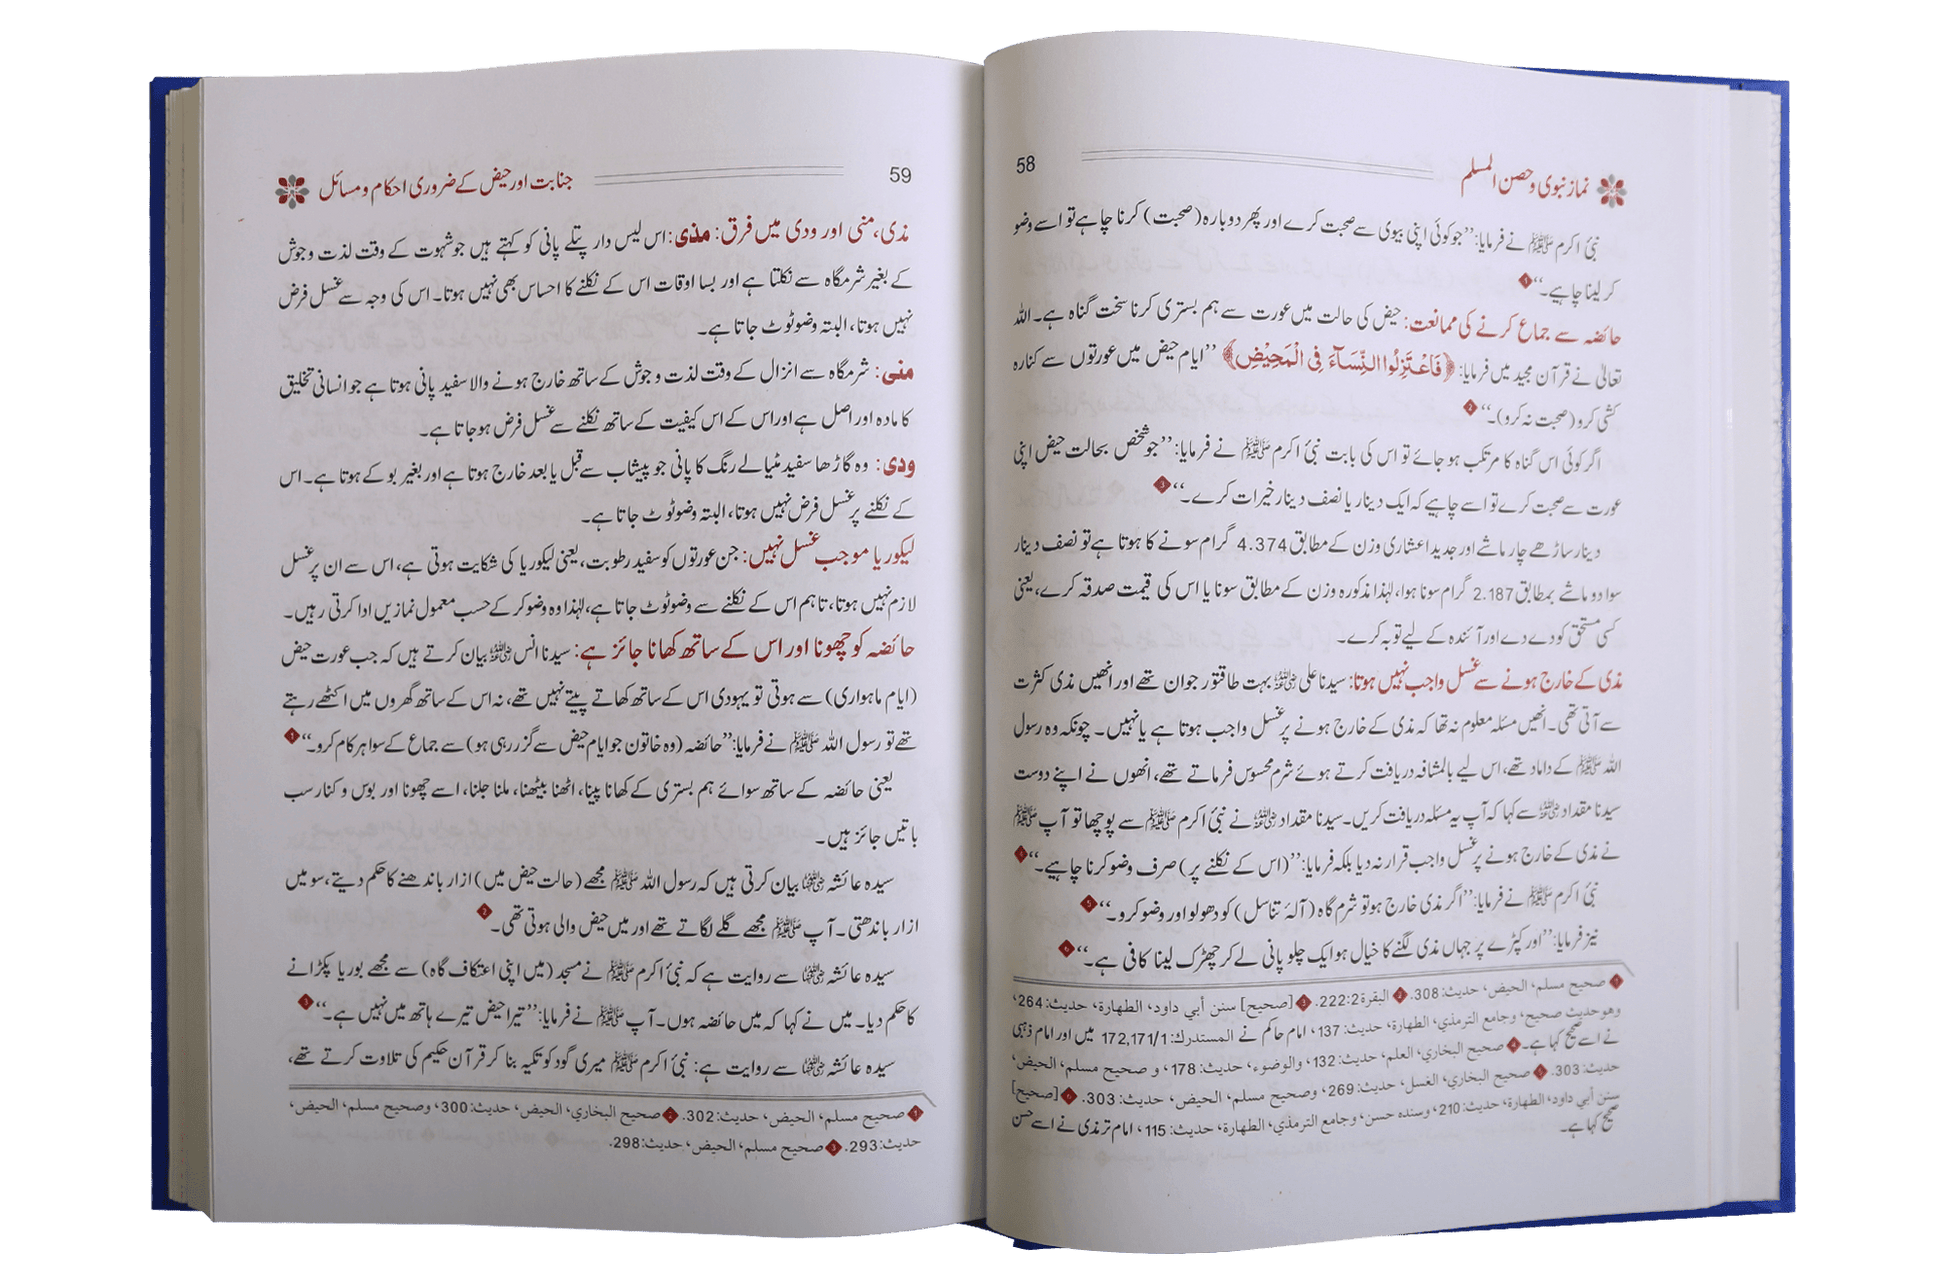 نماز نبوی و حصن المسلم 58
نبیٔ اکرم ﷺ نے فرمایا: ’’جو کوئی اپنی بیوی سے صحبت کرے اور پھر دوبارہ (صحبت) کرنا چاہے تو اسے وضو
کر لینا چاہیے۔‘‘ 1
حائضہ سے جماع کرنے کی ممانعت: حیض کی حالت میں عورت سے ہم بستری کرنا سخت گناہ ہے۔ اللہ
تعالیٰ نے قرآن مجید میں فرمایا: ﴿فَاعْتَزِلُوا النِّسَآءَ فِی الْمَحِیْضِ﴾ ’’ایام حیض میں عورتوں سے کنارہ
کشی کرو (صحبت نہ کرو)۔‘‘ 2
اگر کوئی اس گناہ کا مرتکب ہو جائے تو اس کی بابت نبیٔ اکرم ﷺ نے فرمایا: ’’جو شخص بحالت حیض اپنی
عورت سے صحبت کرے تو اسے چاہیے کہ ایک دینار یا نصف دینار خیرات کرے۔‘‘ 3
دینار ساڑھے چار ماشے اور جدید اعشاری وزن کے مطابق 4.374 گرام سونے کا ہوتا ہے تو نصف دینار
سوا دو ماشے بمطابق 2.187 گرام سونا ہوا، لہٰذا مذکورہ وزن کے مطابق سونا یا اس کی قیمت صدقہ کرے، یعنی
کسی مستحق کو دے دے اور آئندہ کے لیے توبہ کرے۔
مذی کے خارج ہونے سے غسل واجب نہیں ہوتا: سیدنا علی رضی اللہ عنہ بہت طاقتور جوان تھے اور انھیں مذی کثرت
سے آتی تھی۔ انھیں مسئلہ معلوم نہ تھا کہ مذی کے خارج ہونے پر غسل واجب ہوتا ہے یا نہیں۔ چونکہ وہ رسول
اللہ ﷺ کے داماد تھے، اس لیے بالمشافہ دریافت کرتے ہوئے شرم محسوس فرماتے تھے، انھوں نے اپنے دوست
سیدنا مقداد رضی اللہ عنہ سے کہا کہ آپ یہ مسئلہ دریافت کریں۔ سیدنا مقداد رضی اللہ عنہ نے نبیٔ اکرم ﷺ سے پوچھا تو آپ ﷺ
نے مذی کے خارج ہونے پر غسل واجب قرار نہ دیا بلکہ فرمایا: ’’(اس کے نکلنے پر) صرف وضو کرنا چاہیے۔‘‘ 4
نبیٔ اکرم ﷺ نے فرمایا: ’’اگر مذی خارج ہو تو شرم گاہ (آلۂ تناسل) کو دھو لو اور وضو کرو۔‘‘ 5
نیز فرمایا: ’’اور کپڑے پر جہاں مذی لگنے کا خیال ہو ایک چلو پانی لے کر چھڑک لینا کافی ہے۔‘‘ 6
1 صحیح مسلم، الحیض، حدیث: 308. 2 البقرة 222:2. 3 [صحیح] سنن أبي داود، الطهارة، حدیث: 264،
وهو حدیث صحیح، وجامع الترمذي، الطهارة، حدیث: 137، امام حاکم نے المستدرك: 172,171/1 میں اور امام ذہبی
نے اسے صحیح کہا ہے۔ 4 صحیح البخاري، العلم، حدیث: 132، والوضوء، حدیث: 178، و صحیح مسلم، الحیض،
حدیث: 303. 5 صحیح البخاري، الغسل، حدیث: 269، وصحیح مسلم، الحیض، حدیث: 303. 6 [صحیح]
سنن أبي داود، الطهارة، حدیث: 210، وسنده حسن، وجامع الترمذي، الطهارة، حدیث: 115، امام ترمذی نے اسے حسن
صحیح کہا ہے۔
59 جنابت اور حیض کے ضروری احکام و مسائل
مذی، منی اور ودی میں فرق: مذی: اس لیس دار پتلے پانی کو کہتے ہیں جو شہوت کے وقت لذت و جوش
کے بغیر شرمگاہ سے نکلتا ہے اور بسا اوقات اس کے نکلنے کا احساس بھی نہیں ہوتا۔ اس کی وجہ سے غسل فرض
نہیں ہوتا، البتہ وضو ٹوٹ جاتا ہے۔
منی: شرمگاہ سے انزال کے وقت لذت و جوش کے ساتھ خارج ہونے والا سفید پانی ہوتا ہے جو انسانی تخلیق
کا مادہ اور اصل ہے اور اس کے اس کیفیت کے ساتھ نکلنے سے غسل فرض ہو جاتا ہے۔
ودی: وہ گاڑھا سفید مٹیالے رنگ کا پانی جو پیشاب سے قبل یا بعد خارج ہوتا ہے اور بغیر بو کے ہوتا ہے۔ اس
کے نکلنے پر غسل فرض نہیں ہوتا، البتہ وضو ٹوٹ جاتا ہے۔
لیکوریا موجب غسل نہیں: جن عورتوں کو سفید رطوبت، یعنی لیکوریا کی شکایت ہوتی ہے، اس سے ان پر غسل
لازم نہیں ہوتا، تاہم اس کے نکلنے سے وضو ٹوٹ جاتا ہے، لہٰذا وہ وضو کر کے حسب معمول نمازیں ادا کرتی رہیں۔
حائضہ کو چھونا اور اس کے ساتھ کھانا جائز ہے: سیدنا انس رضی اللہ عنہ بیان کرتے ہیں کہ جب عورت حیض
(ایام ماہواری) سے ہوتی تو یہودی اس کے ساتھ کھاتے پیتے نہیں تھے، نہ اس کے ساتھ گھروں میں اکٹھے رہتے
تھے تو رسول اللہ ﷺ نے فرمایا: ’’حائضہ (وہ خاتون جو ایام حیض سے گزر رہی ہو) سے جماع کے سوا ہر کام کرو۔‘‘ 1
یعنی حائضہ کے ساتھ سوائے ہم بستری کے کھانا پینا، اٹھنا بیٹھنا، ملنا جلنا، اسے چھونا اور بوس و کنار سب
باتیں جائز ہیں۔
سیدہ عائشہ رضی اللہ عنہا بیان کرتی ہیں کہ رسول اللہ ﷺ مجھے (حالت حیض میں) ازار باندھنے کا حکم دیتے، سو میں
ازار باندھتی۔ آپ ﷺ مجھے گلے لگاتے تھے اور میں حیض والی ہوتی تھی۔ 2
سیدہ عائشہ رضی اللہ عنہا سے روایت ہے کہ نبیٔ اکرم ﷺ نے مسجد (میں اپنی اعتکاف گاہ) سے مجھے بوریا پکڑانے
کا حکم دیا۔ میں نے کہا کہ میں حائضہ ہوں۔ آپ ﷺ نے فرمایا: ’’تیرا حیض تیرے ہاتھ میں نہیں ہے۔‘‘ 3
سیدہ عائشہ رضی اللہ عنہا سے روایت ہے: نبیٔ اکرم ﷺ میری گود کو تکیہ بنا کر قرآن حکیم کی تلاوت کرتے تھے،
1 صحیح مسلم، الحیض، حدیث: 302. 2 صحیح البخاري، الحیض، حدیث: 300، وصحیح مسلم، الحیض،
حدیث: 293. 3 صحیح مسلم، الحیض، حدیث: 298.